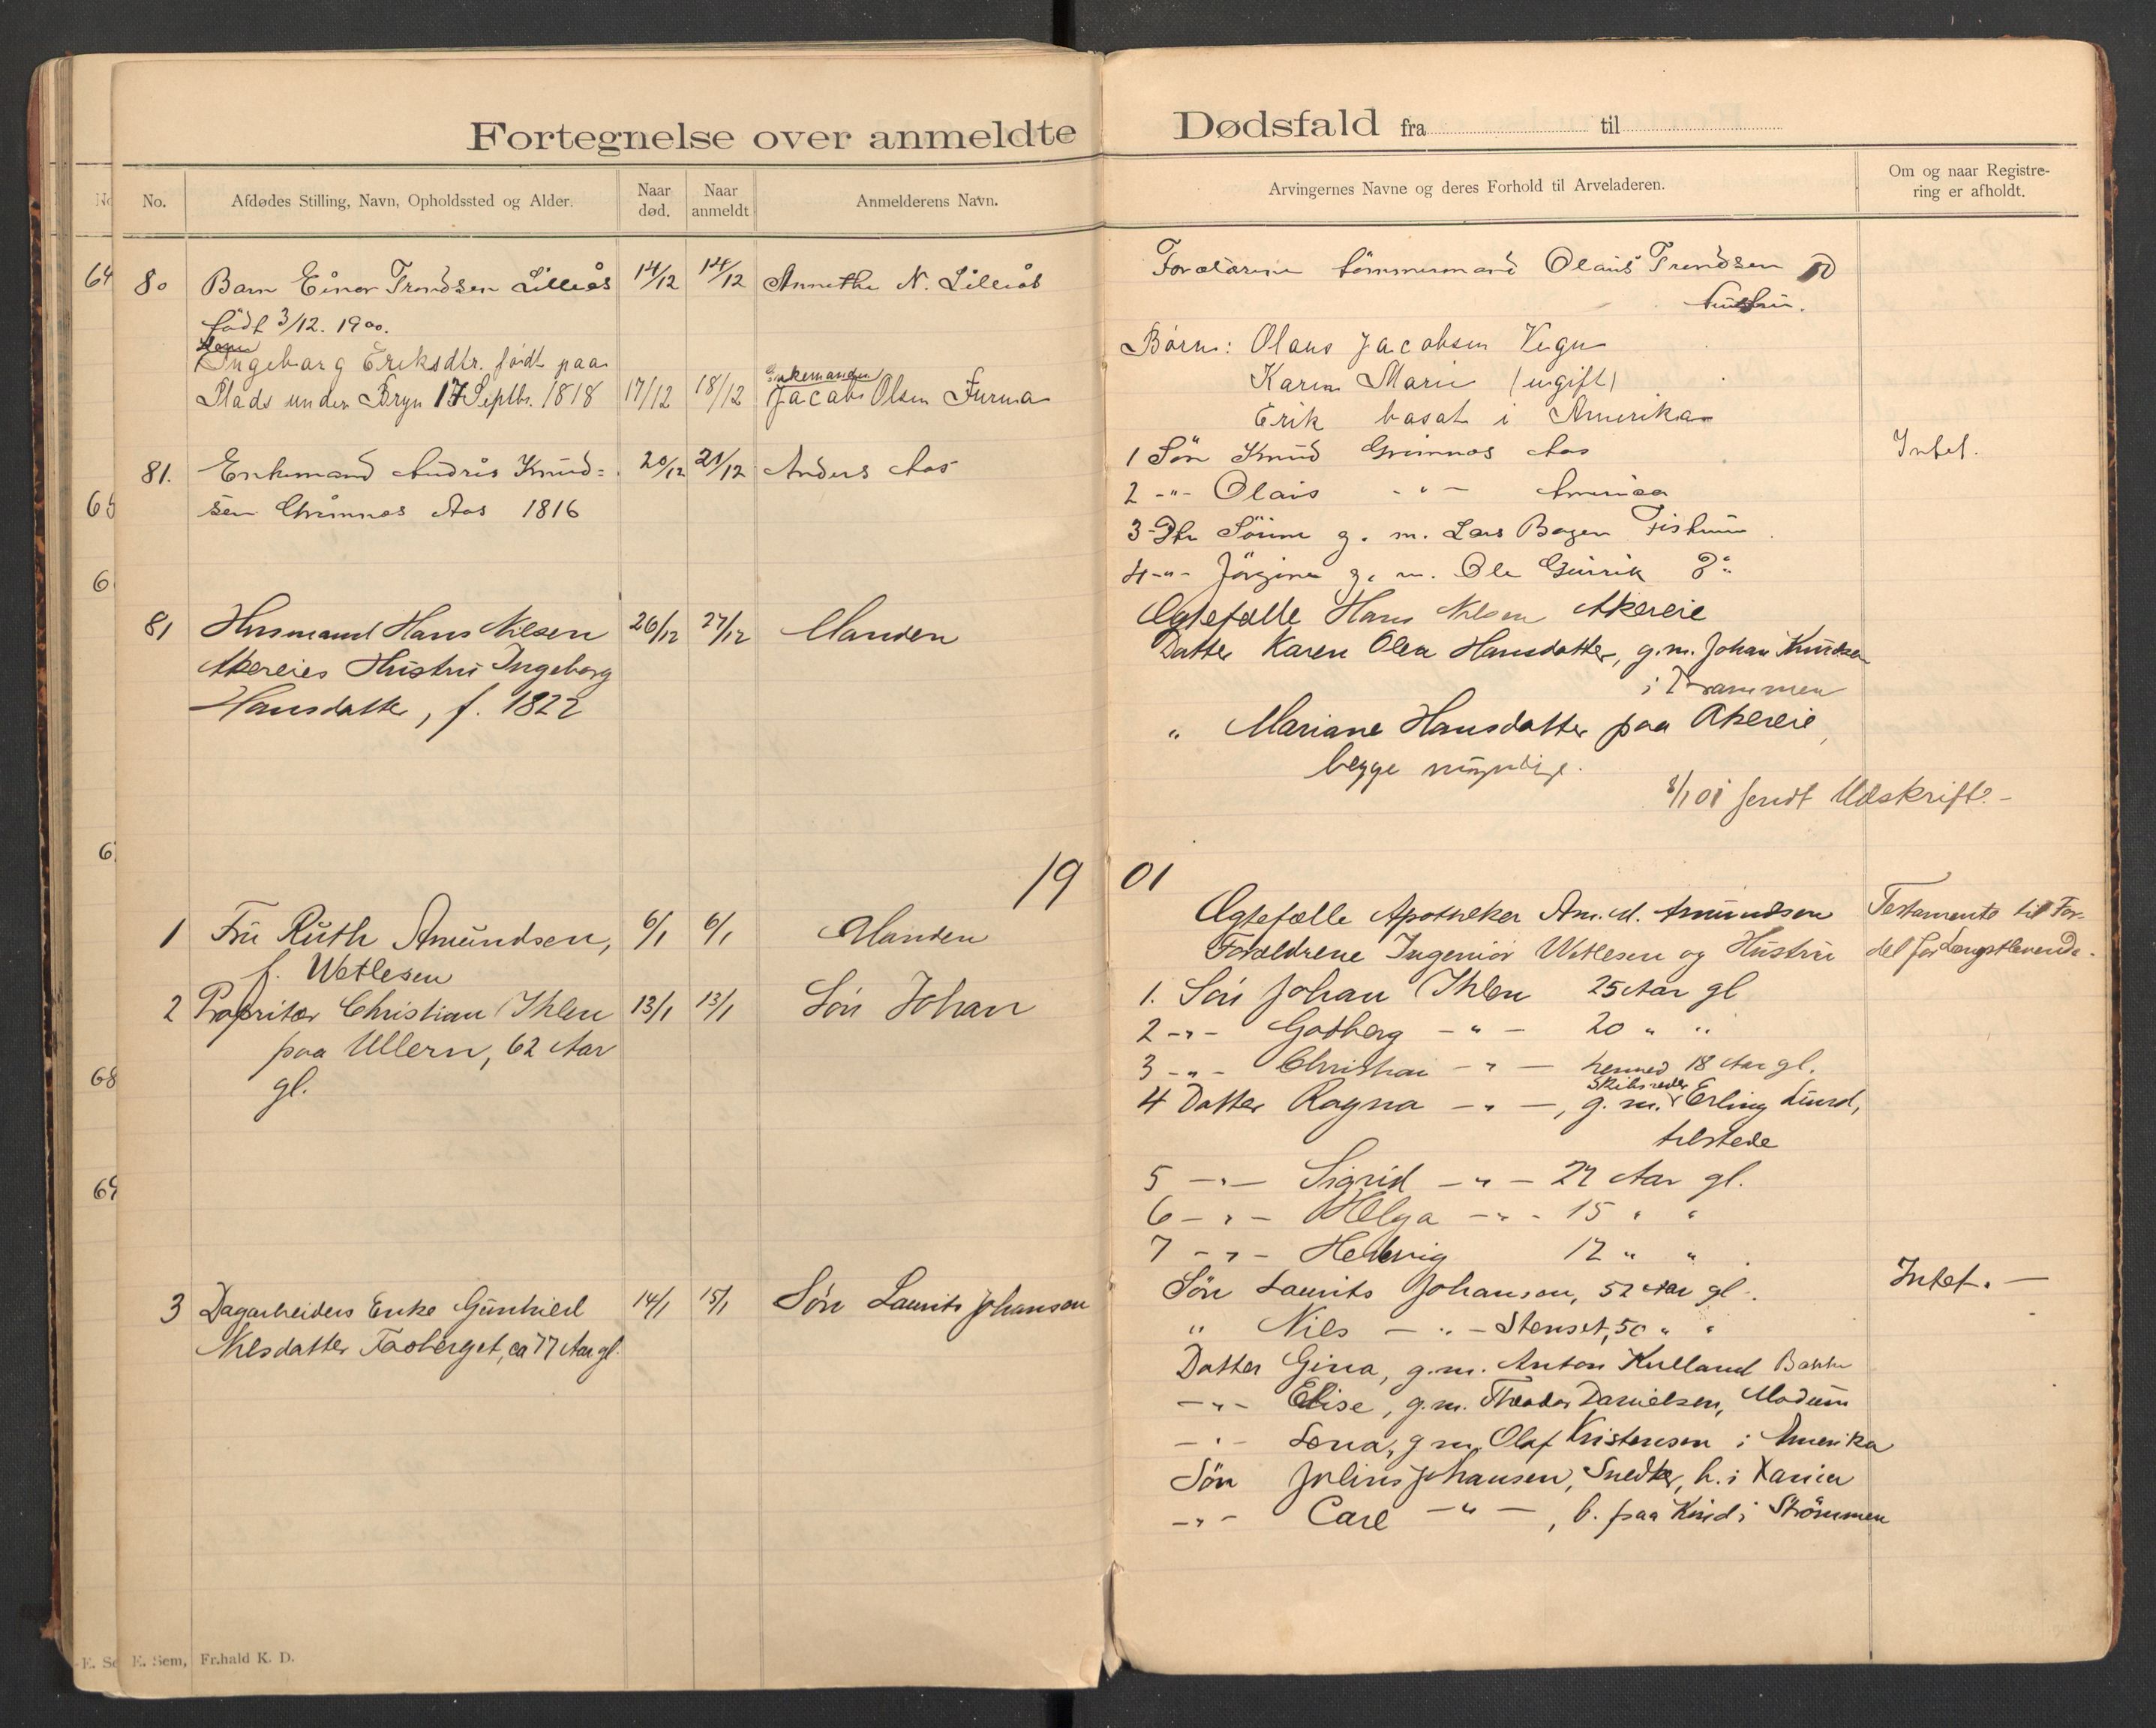 Fortegnelse over anmeldte Dødsfald fra til
No.
Afdødes Stilling, Navn, Opholdssted og Alder.
Naar død.
Naar anmeldt
Anmelderens Navn.
Arvingernes Navne og deres Forhold til Arveladeren.
Om og naar Registrering er afholdt.
64
80 Barn Einar Trondsen Lilleås 14/12 14/12 Annethe N. Lilleås
født 3/12. 1900.
Ingeborg Eriksdtr. født paa
Plads under Bryn 17 Septbr. 1818 17/12 18/12 Enkemanden Jacob Olsen Furma
81. Enkemand Andris Knud= 20/12 21/12 Anders Aas
sen Grimnes Aas 1816
65
6
81 Husmand Hans Nilsen 26/12 27/12 Manden
Akereies Hustru Ingeborg
Hansdatter, f. 1822
6
19
1 Fru Ruth Amundsen, 6/1 6/1 Manden
f. Wetlesen
2 Propritær Christian Ihlen 13/1 13/1 Søn Johan
paa Ullern, 62 Aar
gl.
68
69
3 Dagarbeiders Enke Gunhild 14/1 15/1 Søn Laurits Johansen
Nilsdatter Faaberget, ca 77 Aar gl.
E. Sem, Fr.hald K. D.
Forældrene Tømmermand Olaus Trondsen
Hustru.
Børn: Olaus Jacobsen
Karen Marie (ugift)
Erik bosat i Amerika
1 Søn Knud Grimnes Aas Intet.
2 -"- Olais - " - Amerika
3 Dtr Sørine g. m. Lars Bagen Fiskum
4 -"- Jørgine g. m. Ole
Ægtefælle Hans Nilsen Akereie
Datter Karen Olea Hansdatter, g.m. Johan Knudsen
i Drammen
" Mariane Hansdatter paa Akereie,
begge myndige.
8/1 01 sendt Udskrift.-
01
Ægtefælle Apotheker Am. M. Amundsen Testamente til For-
Forældrene Ingeniør Wetlesen og Hustru del for Længstlevende.
1. Søn Johan Ihlen 25 Aar gl
2 -"- Godberg -"- 20 " "
3 -"- Christian -"- 18 Aar gl.
4 Datter Ragna -"-, g. m. Skibsreder Erling Lund,
tilstede
5 -"- Sigrid -"- 27 Aar gl.
6 -"- Helga -"- 15 " "
7 -"- Hedevig 12 " "
Søn Laurits Johansen, 52 Aar gl. Intet. -
" Nils -"- Stenset, 50 " "
Datter Gina, g.m. Anton Kulland Bakke
-"- Elise, g.m. Theodor Danielsen, Modum
-"- Lena, g m. Olaf Kristensen i Amerika
Søn Julius Johansen, Snedker, b. i Xania
-"- Carl -"-, b. paa Kind i Strømmen